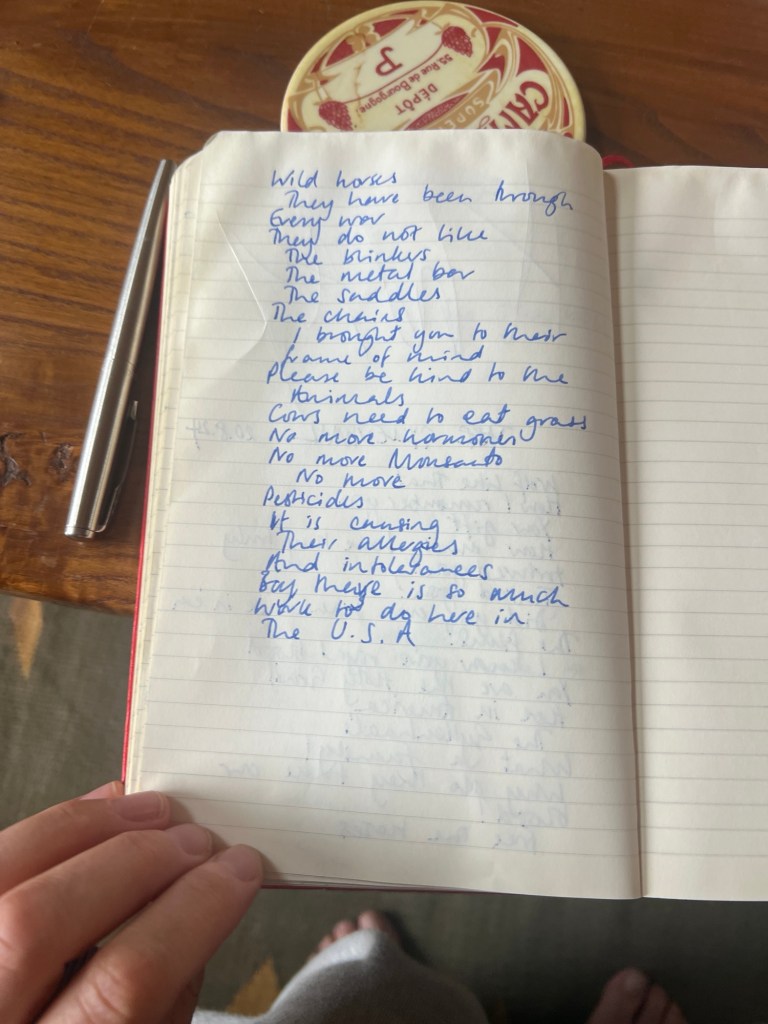 CAM
SUPE
DÉPÔT
55 Rue de Bourgogne
P
Wild horses
They have been through
Every war
They do not like
The blinkers
The metal bar
The saddles
The chains
I brought you to their
frame of mind
Please be kind to the
Animals
Cows need to eat grass
No more hormones
No more Monsanto
No more
Pesticides
It is causing
Their allergies
And intolerances
there is so much
Work to do here in
The U.S.A